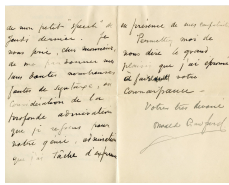 de mon petit "speech" de
jeudi dernier. Je
vous prie, cher monsieur,
de me pardonner mes
fautes de syntaxe, en
considération de la
profonde admiration
que je
votre génie, admiration
que j'ai tâché d'exprimer
en présence de mes
Permettez moi de
vous dire le grand
plaisir que j'ai éprouvé
à faire votre
connaissance.
Votre très dévoué